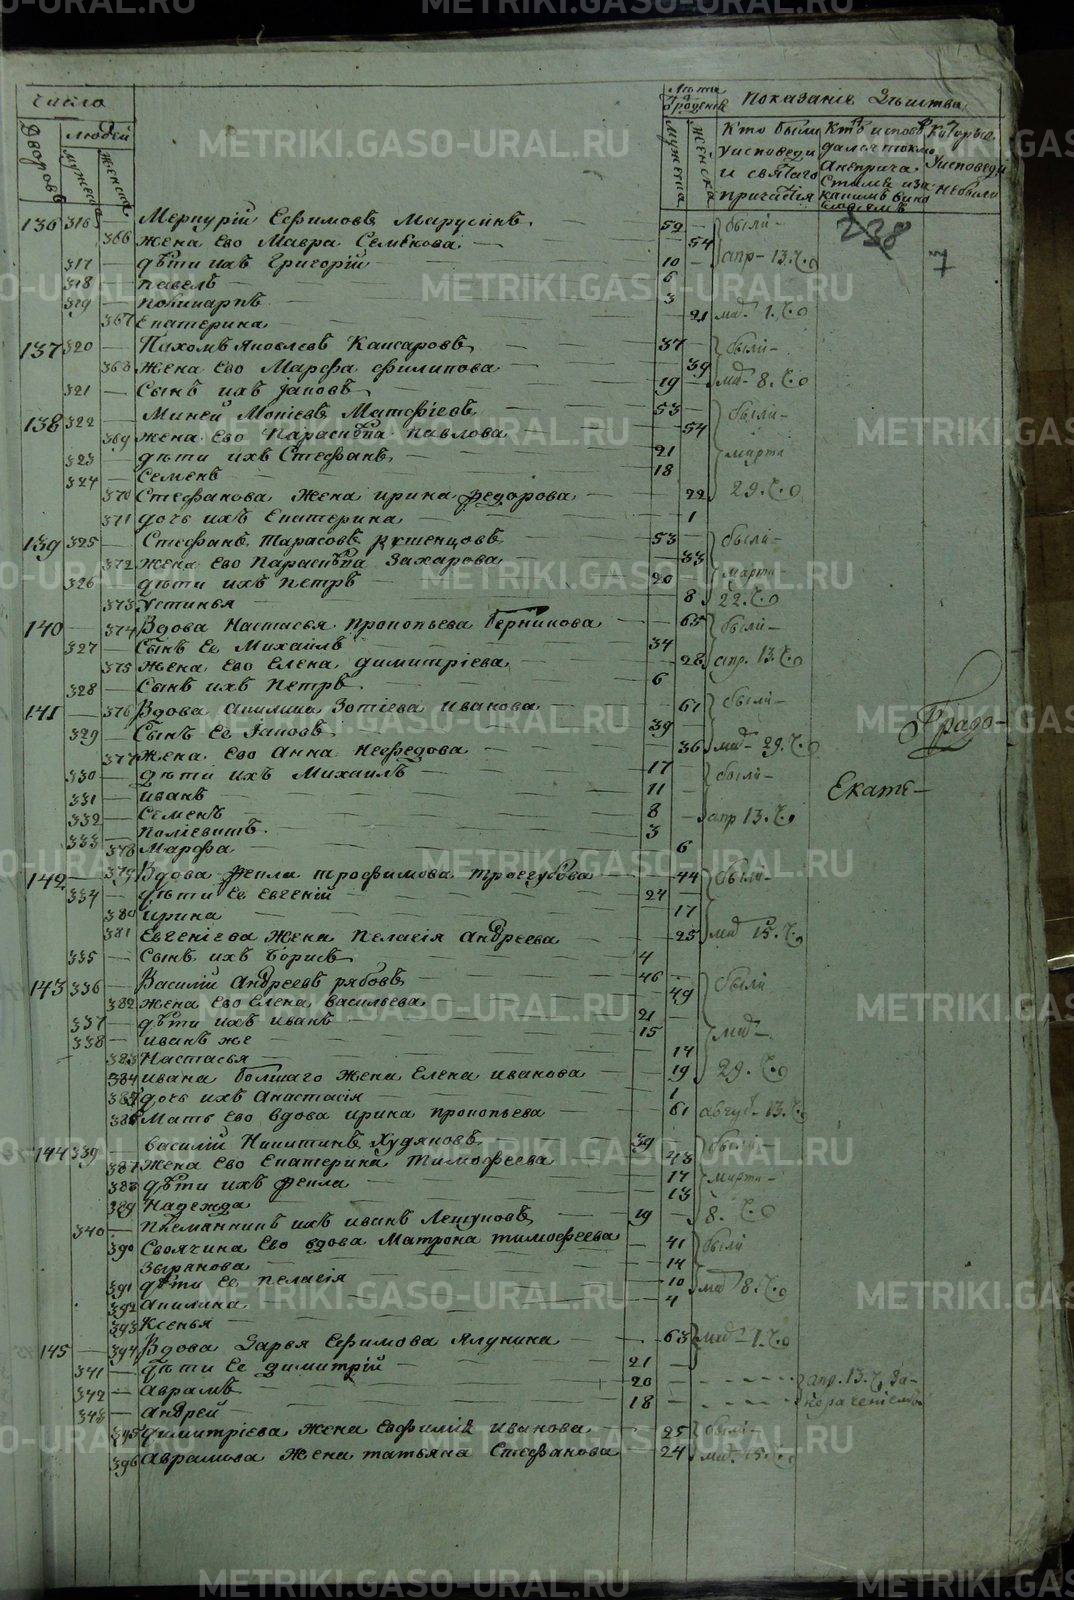 METRIKI.GASO-URAL.RU
Число
Дворовъ
Людей
Мужеска
Женска
Лѣта
Мужеска
Женска
Показаніе
Кто были
Уисповеди
и святаго
причастія
Уисповеди
небыли
238
7
136 316 — Меркурій Ефимовъ Марусинъ 59 — были —
366 Жена Ево Мавра Семенова — 54
317 — дѣти ихъ Григорій — 10 — апр — 13. Ч. 0
318 — Павелъ — 6
319 — Поликарпъ — 3
367 Екатерина — 21 ма. 1. Ч. 0
137 320 — Пахомъ Яковлевъ 37 — были —
368 Жена Ево Марфа Филипова — 39
321 — Сынъ ихъ Іаковъ — 19 — ма. 8. Ч. 0
138 322 — Миней Матфіевъ 53 — были —
369 Жена Ево Параскѣва Павлова — 54
323 — дѣти ихъ Стефанъ — 21 марта
324 — Семенъ — 18
370 Стефанова Жена Ирина Федорова — 22 29. Ч. 0
371 дочь ихъ Екатерина — 1
139 325 — Стефанъ Тарасовъ 53 — были —
372 Жена Ево Параскѣва Захарова — 33
326 — дѣти ихъ Петръ — 20 марта
373 Устинья — 8 22. Ч. 0
140 — 374 Вдова Настасья Прокопьева Берникова — 65 были —
327 — Сынъ Ее Михаилъ — 34
375 Жена Ево Елена Димитріева — 28 апр. 13. Ч. 0
328 — Сынъ ихъ Петръ — 6
141 — 376 Вдова Акилина Зотіева Иванова — 61 были —
329 — Сынъ Ее Іаковъ — 39
377 Жена Ево Анна Нефедова — 36 ма. 29. Ч. 0
330 — дѣти ихъ Михаилъ — 17 были —
331 — Иванъ — 11
332 — Семенъ — 8 апр 13. Ч. 0
333 — 3
378 Марфа — 6
Градо-
Екате-
142 — 379 Вдова Фекла Трофимова Троегубова — 44 были —
334 — дѣти Ее Евгеній — 24 —
380 Ирина — 17
381 Евгеніева Жена Пелагія Андреева — 25 ма. 15. Ч. 0
335 — Сынъ ихъ Борисъ — 4
143 336 — Василій Андреевъ Рябовъ — 46 — были
382 Жена Ево Елена Васильева — 49
337 — дѣти ихъ Иванъ — 21 —
338 — Иванъ же — 15 ма. —
383 Настасья — 14
384 Ивана болшаго Жена Елена Иванова — 19 29. Ч. 0
385 дочь ихъ Анастасія — 1
386 Мать Ево вдова Ирина Прокопьева — 61 август. 13. Ч. 0
144 339 — Василій Никитинъ Худяковъ — 39 — были
387 Жена Ево Екатерина Тимофеева — 43
388 дѣти ихъ Фекла — 17 марта —
389 Надежда — 13
340 — Племянникъ ихъ Иванъ Летуновъ — 19 — 8. Ч. 0
390 Своячина Ево вдова Матрона Тимофеева — 41 были
Зырянова — 14
391 дѣти Ее Пелагія — 10 ма. 8. Ч. 0
392 Акилина — 4
393 Ксенья —
145 — 394 Вдова Дарья Ефимова Ялунина — 63 ма. 1. Ч. 0
341 — дѣти Ее Димитрій — 21 —
342 — Аврамъ — 20 — апр. 13. Ч. За-
343 — Андрей — 18 —
395 Димитріева Жена Евфимія Иванова — 25 были —
396 Аврамова Жена Татьяна Стефанова — 24 ма. 15. Ч. 0